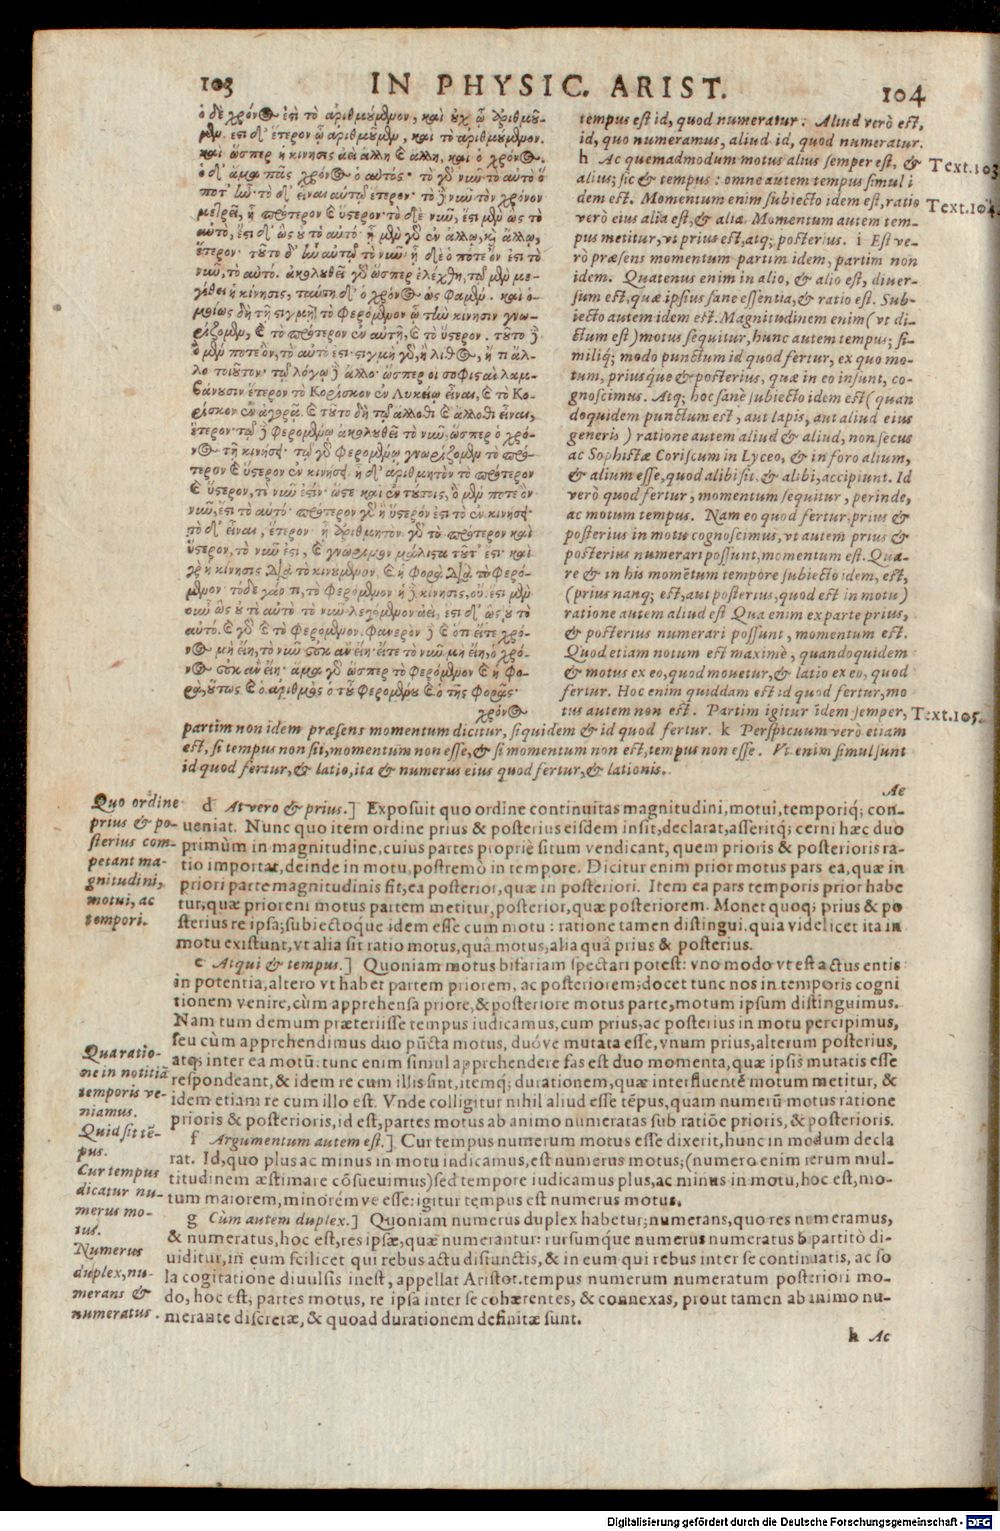 103
IN PHYSIC. ARIST.
104
ὁ δὲ χρόνος ἐστὶ τὸ ἀριθμούμενον, καὶ οὐχ ᾧ ἀριθμοῦ-
μεν. ἔστι δ' ἕτερον ᾧ ἀριθμοῦμεν, καὶ τὸ ἀριθμούμενον.
καὶ ὥσπερ ἡ κίνησις ἀεὶ ἄλλη καὶ ἄλλη, καὶ ὁ χρόνος.
ὁ δ' ἅμα πᾶς χρόνος ὁ αὐτός· τὸ γὰρ νῦν τὸ αὐτὸ ὅ
ποτ' ἦν· τὸ δ' εἶναι αὐτῷ ἕτερον· τὸ δὲ νῦν τὸν χρόνον
μετρεῖ, ᾗ πρότερον καὶ ὕστερον· τὸ δὲ νῦν, ἔστι μὲν ὡς τὸ
αὐτὸ, ἔστι δ' ὡς οὐ τὸ αὐτό· ᾗ μὲν γὰρ ἐν ἄλλῳ, καὶ ἄλλῳ,
ἕτερον· τοῦτο δ' ἦν αὐτῷ τὸ νῦν· ᾗ δὲ ὅ ποτε ὄν ἐστι τὸ
νῦν, τὸ αὐτό. ἀκολουθεῖ γὰρ ὥσπερ ἐλέχθη, τῷ μὲν με-
γέθει ἡ κίνησις, ταύτῃ δ' ὁ χρόνος ὡς φαμέν. καὶ ὁ-
μοίως δὴ τῇ στιγμῇ τὸ φερόμενον ᾧ τὴν κίνησιν γνω-
ρίζομεν, καὶ τὸ πρότερον ἐν αὐτῇ, καὶ τὸ ὕστερον. τοῦτο δὲ
ὃ μέν ποτε ὄν, τὸ αὐτό ἐστι· στιγμὴ γὰρ, ἢ λίθος, ἤ τι ἄλ-
λο τοιοῦτον· τῷ λόγῳ δὲ ἄλλο· ὥσπερ οἱ σοφισταὶ λαμ-
βάνουσιν ἕτερον τὸ Κορίσκον ἐν Λυκείῳ εἶναι, καὶ τὸ Κο-
ρίσκον ἐν ἀγορᾷ. καὶ τοῦτο δὴ τῷ ἄλλοθι καὶ ἄλλοθι εἶναι,
ἕτερον· τῷ δὲ φερομένῳ ἀκολουθεῖ τὸ νῦν, ὥσπερ ὁ χρό-
νος τῇ κινήσει· τῷ γὰρ φερομένῳ γνωρίζομεν τὸ πρό-
τερον καὶ ὕστερον ἐν κινήσει· ᾗ δ' ἀριθμητὸν τὸ πρότερον
καὶ ὕστερον, τὸ νῦν ἐστίν· ὥστε καὶ ἐν τούτοις, ὃ μέν ποτε ὂν
νῦν, ἐστὶ τὸ αὐτό· πρότερον γὰρ ἢ ὕστερόν ἐστι τὸ ἐν κινήσει·
τὸ δ' εἶναι, ἕτερον· ᾗ ἀριθμητὸν γὰρ τὸ πρότερον καὶ
ὕστερον, τὸ νῦν ἐστι, καὶ γνώριμον μάλιστα τοῦτ' ἐστὶ· καὶ
γὰρ ἡ κίνησις διὰ τὸ κινούμενον, καὶ ἡ φορὰ διὰ τὸ φερό-
μενον· τόδε γάρ τι, τὸ φερόμενον· ἡ δὲ κίνησις, οὔ. ἔστι μὲν
οὖν ὡς οὐ τὸ αὐτὸ τὸ νῦν λεγόμενον ἀεὶ, ἔστι δ' ὡς οὐ τὸ
αὐτό. καὶ γὰρ καὶ τὸ φερόμενον. φανερὸν δὲ καὶ ὅτι εἴτε χρό-
νος μὴ εἴη, τὸ νῦν οὐκ ἂν εἴη· εἴτε τὸ νῦν μὴ εἴη, ὁ χρό-
νος οὐκ ἂν εἴη· ἅμα γὰρ ὥσπερ τὸ φερόμενον καὶ ἡ φο-
ρὰ, οὕτως καὶ ὁ ἀριθμὸς ὁ τοῦ φερομένου καὶ ὁ τῆς φορᾶς·
χρόνος
tempus est id, quod numeratur. Aliud verò est,
id, quo numeramus, aliud id, quod numeratur.
h Ac quemadmodum motus alius semper est, &
alius; sic & tempus: omne autem tempus simul i
dem est. Momentum enim subiecto idem est, ratio
verò eius alia est, & alia. Momentum autem tem-
pus metitur, vt prius est, atq; posterius. i Est ve-
rò præsens momentum partim idem, partim non
idem. Quatenus enim in alio, & alio est, diuer-
sum est, quæ ipsius sane essentia, & ratio est. Sub-
iecto autem idem est. Magnitudinem enim (vt di-
ctum est) motus sequitur, hunc autem tempus; si-
miliq; modo punctum id quod fertur, ex quo mo-
tum, priusque & posterius, quæ in eo insunt, co-
gnoscimus. Atq; hoc sanè subiecto idem est (quan
doquidem punctum est, aut lapis, aut aliud eius
generis) ratione autem aliud & aliud, non secus
ac Sophistæ Coriscum in Lyceo, & in foro alium,
& alium esse, quod alibi sit, & alibi, accipiunt. Id
verò quod fertur, momentum sequitur, perinde,
ac motum tempus. Nam eo quod fertur, prius &
posterius in motu cognoscimus, vt autem prius &
posterius numerari possunt, momentum est. Qua-
re & in his momẽtum tempore subiecto idem, est,
(prius nanq; est, aut posterius, quod est in motu)
ratione autem aliud est Qua enim ex parte prius,
& posterius numerari possunt, momentum est.
Quod etiam notum est maximè, quandoquidem
& motus ex eo, quod mouetur, & latio ex eo, quod
fertur. Hoc enim quiddam est id quod fertur, mo
tus autem non est. Partim igitur idem semper,
Text.103
Text.104.
Text.105.
partim non idem præsens momentum dicitur, siquidem & id quod fertur. k Perspicuum verò etiam
est, si tempus non sit, momentum non esse, & si momentum non est, tempus non esse. Vt enim simul sunt
id quod fertur, & latio, ita & numerus eius quod fertur, & lationis.
Ae
Quo ordine
prius & po-
sterius com-
petant ma-
gnitudini,
motui, ac
tempori.
d At vero & prius.] Exposuit quo ordine continuitas magnitudini, motui, temporiq; con-
ueniat. Nunc quo item ordine prius & posterius eisdem insit, declarat, asseritq; cerni hæc duo
primùm in magnitudine, cuius partes propriè situm vendicant, quem prioris & posterioris ra-
tio importat, deinde in motu, postremò in tempore. Dicitur enim prior motus pars ea, quæ in
priori parte magnitudinis fit, ea posterior, quæ in posteriori. Item ea pars temporis prior habe
tur, quæ priorem motus partem metitur, posterior, quæ posteriorem. Monet quoq; prius & po
sterius re ipsa, subiectoque idem esse cum motu: ratione tamen distingui. quia videlicet ita in
motu existunt, vt alia sit ratio motus, quâ motus, alia quâ prius & posterius.
e Atqui & tempus.] Quoniam motus bifariam spectari potest: vno modo vt est actus entis
in potentia, altero vt habet partem priorem, ac posteriorem; docet tunc nos in temporis cogni
tionem venire, cùm apprehensa priore, & posteriore motus parte, motum ipsum distinguimus.
Nam tum demum præteriisse tempus iudicamus, cum prius, ac posterius in motu percipimus,
seu cùm apprehendimus duo pũcta motus, duóve mutata esse, vnum prius, alterum posterius,
atq; inter ea motũ: tunc enim simul apprehendere fas est duo momenta, quæ ipsis mutatis esse
respondeant, & idem re cum illis sint, itemq; durationem, quæ interfluentẽ motum metitur, &
idem etiam re cum illo est. Vnde colligitur nihil aliud esse tẽpus, quam numerũ motus ratione
prioris & posterioris, id est, partes motus ab animo numeratas sub ratiõe prioris, & posterioris.
Qua ratio-
ne in notitiã
temporis ve-
niamus.
Quid sit tẽ-
pus.
Cur tempus
dicatur nu-
merus mo-
tus.
Numerus
duplex, nu-
merans &
numeratus.
f Argumentum autem est.] Cur tempus numerum motus esse dixerit, hunc in modum decla
rat. Id, quo plus ac minus in motu indicamus, est numerus motus; (numero enim rerum mul-
titudinem æstimare cõsueuimus) sed tempore iudicamus plus, ac minus in motu, hoc est, mo-
tum maiorem, minorémve esse: igitur tempus est numerus motus.
g Cùm autem duplex.] Quoniam numerus duplex habetur; numerans, quo res numeramus,
& numeratus, hoc est, res ipsæ, quæ numerantur: rursumque numerus numeratus bipartitò di-
uiditur, in eum scilicet qui rebus actu disiunctis, & in eum qui rebus inter se continuatis, ac so
la cogitatione diuulsis inest, appellat Aristot. tempus numerum numeratum posteriori mo-
do, hoc est, partes motus, re ipsa inter se cohærentes, & connexas, prout tamen ab animo nu-
merante discretæ, & quoad durationem definitæ sunt.
h Ac
Digitalisierung gefördert durch die Deutsche Forschungsgemeinschaft - DFG